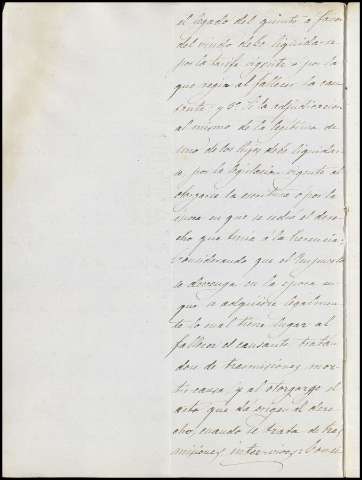 el legado del quinto a favor
del viudo debe liquidarse
por la tarifa vigente o por la
que regia al fallecer la cau
sante: y 5º Si la adjudicacion
al mismo de la legitima de
uno de los hijos debe liquidar
se por la legislacion vigente al
otorgarse la escritura o por la
epoca en que se cedió el dere
cho que tenia á la herencia:
considerando que el Impuesto
se devenga en la epoca en
que se adquiere legalmen
te lo cual tiene lugar al
fallecer el causante tratan
dose de trasmisiones mor
tis causa, y al otorgarse el
acto que dá origen al dere
cho, cuando se trata de tras
misiones inter-vivos: Consi